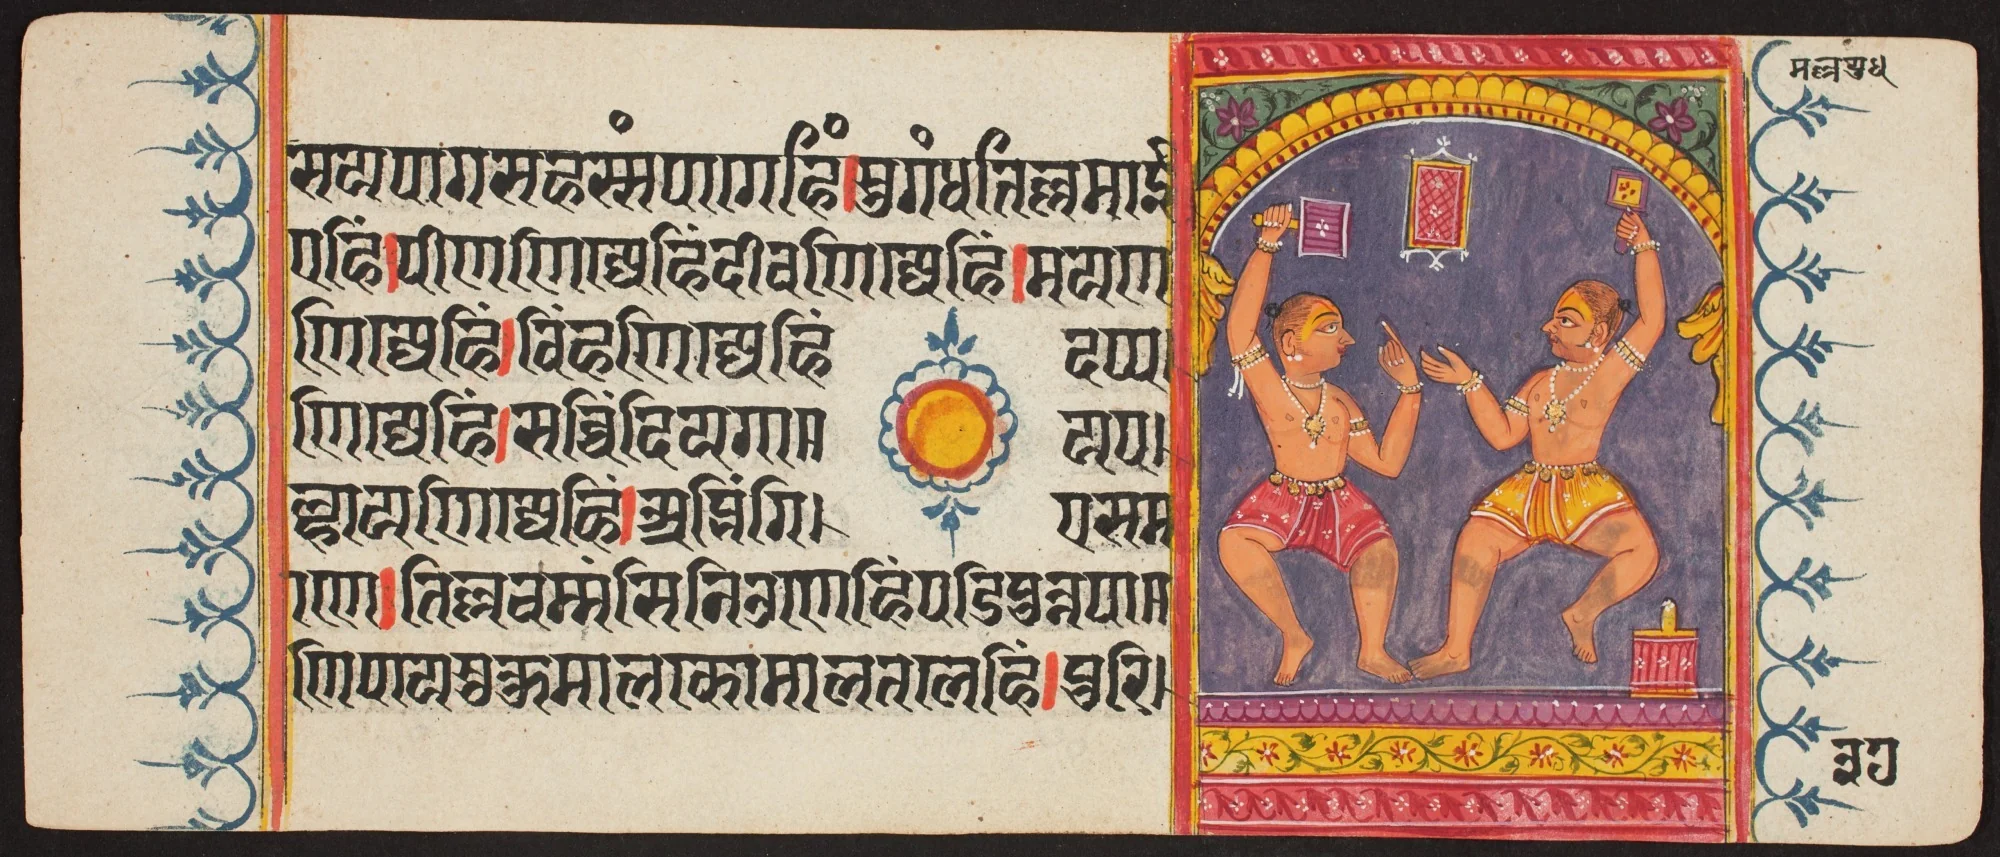 मल्लयुध
सयपागसहस्संपागेहिं।सुगंधतिल्लमाइ
एहिं।पीणणिज्जेहिंदीवणिज्जेहिं।मयण
णिज्जेहिं।विंहणिज्जेहिं दप्प।
णिज्जेहिं।सव्विंदियगा॥ यप।
ल्हायणिज्जेहिं।अब्भिंगि। एसमा
णे।तिल्लचम्मंसिनिउणेहिंपडिपुन्नपा॥
णिपायसुकुमालकोमालतलेहिं।पुरि।
३७